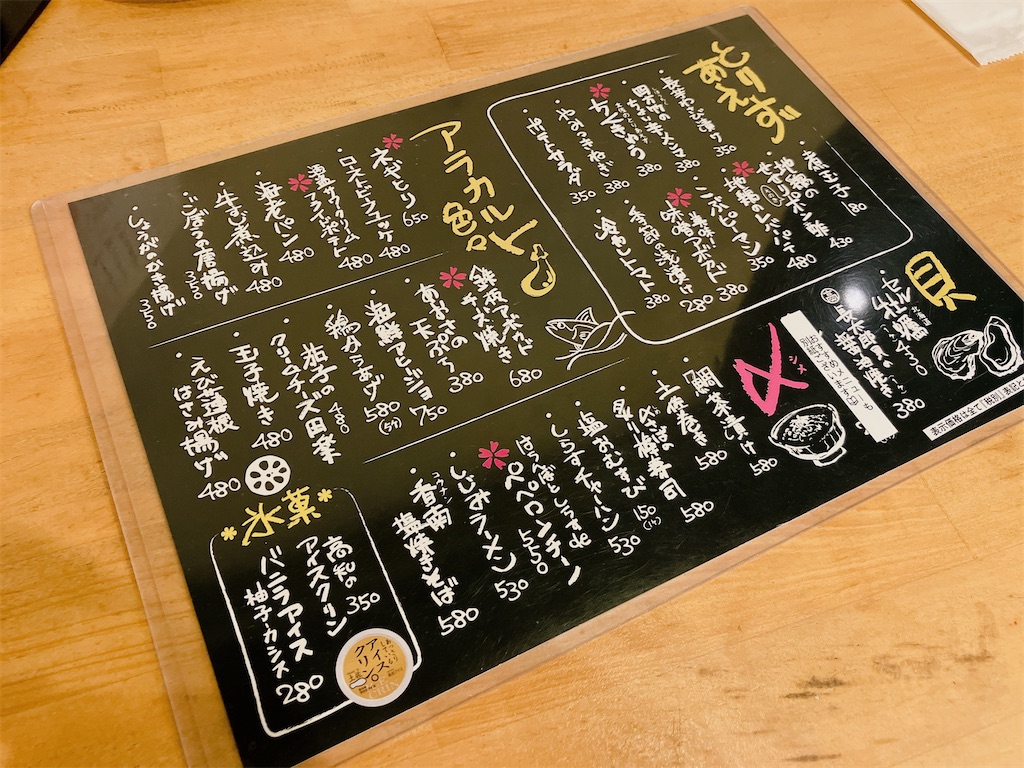 とりあえず
長芋わさび漬け 350
380
ちくきゅう 380
やみつきねぎ 380
ポテトサラダ 350
煮玉子 180
地鶏のポン酢 430
地鶏レバーパテ 480
こボピーマン 350
味噌アボカド 380
季節の浅漬け 280
冷やしトマト 380
貝
セル牡蠣 430
長太郎貝の醤油焼き 380
おすすめメニューも
別紙でございます
表示価格は全て『税別』表記と
アラカルト色々
ネギとり 650
ローストビーフユッケ 480
酒盗サワークリーム
フライドポテト 480
海老パン 480
牛すじ煮込み 480
ごぼうの唐揚げ 350
しょうがのかき揚げ 350
釜揚アボカド
チーズ焼き 680
あおさのり
天ぷら 380
海鮮アヒージョ 750
鶏からあげ 580
(5ケ)
茄子の田楽 480
クリームチーズ
玉子焼き 480
えび蓮根
はさみ揚げ 480
〆
シメ
鯛茶漬け 580
土佐巻き 580
炙りさば棒寿司 580
塩おむすび 150
(1ケ)
しらすチャーハン 530
ほうれん草としらすde
ペペロンチーノ 550
しじみラーメン 530
香南
コウナン
塩焼きそば 580
氷菓
高知の
アイスクリン 350
バニラアイス
柚子・カシス 280
アイス
クリン。